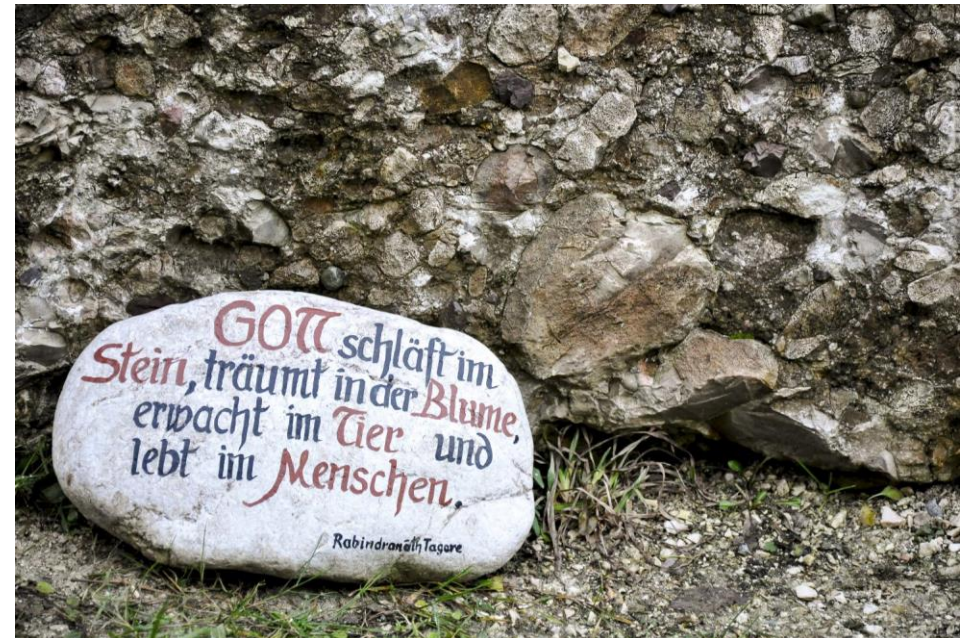 GOTT schläft im
Stein, träumt in der Blume,
erwacht im Tier und
lebt im Menschen.
Rabindranath Tagore